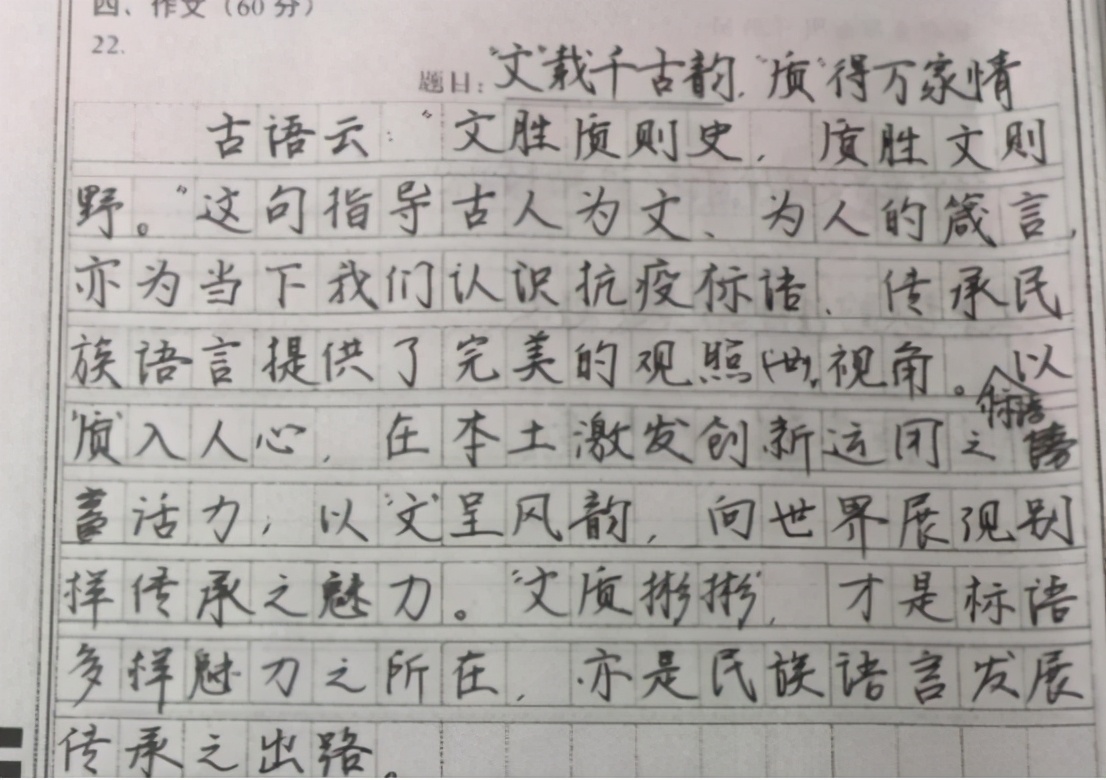 四、作文（60分）
22.
题目："文"载千古韵，"质"得万家情
古语云："文胜质则史，质胜文则
野。"这句指导古人为文、为人的箴言，
亦为当下我们认识抗疫标语、传承民
族语言提供了完美的观照视角。以
标语
"质"入人心，在本土激发创新运用之
活力，以"文"呈风韵，向世界展现别
样传承之魅力。"文质彬彬"，才是标语
多样魅力之所在，亦是民族语言发展
传承之出路。